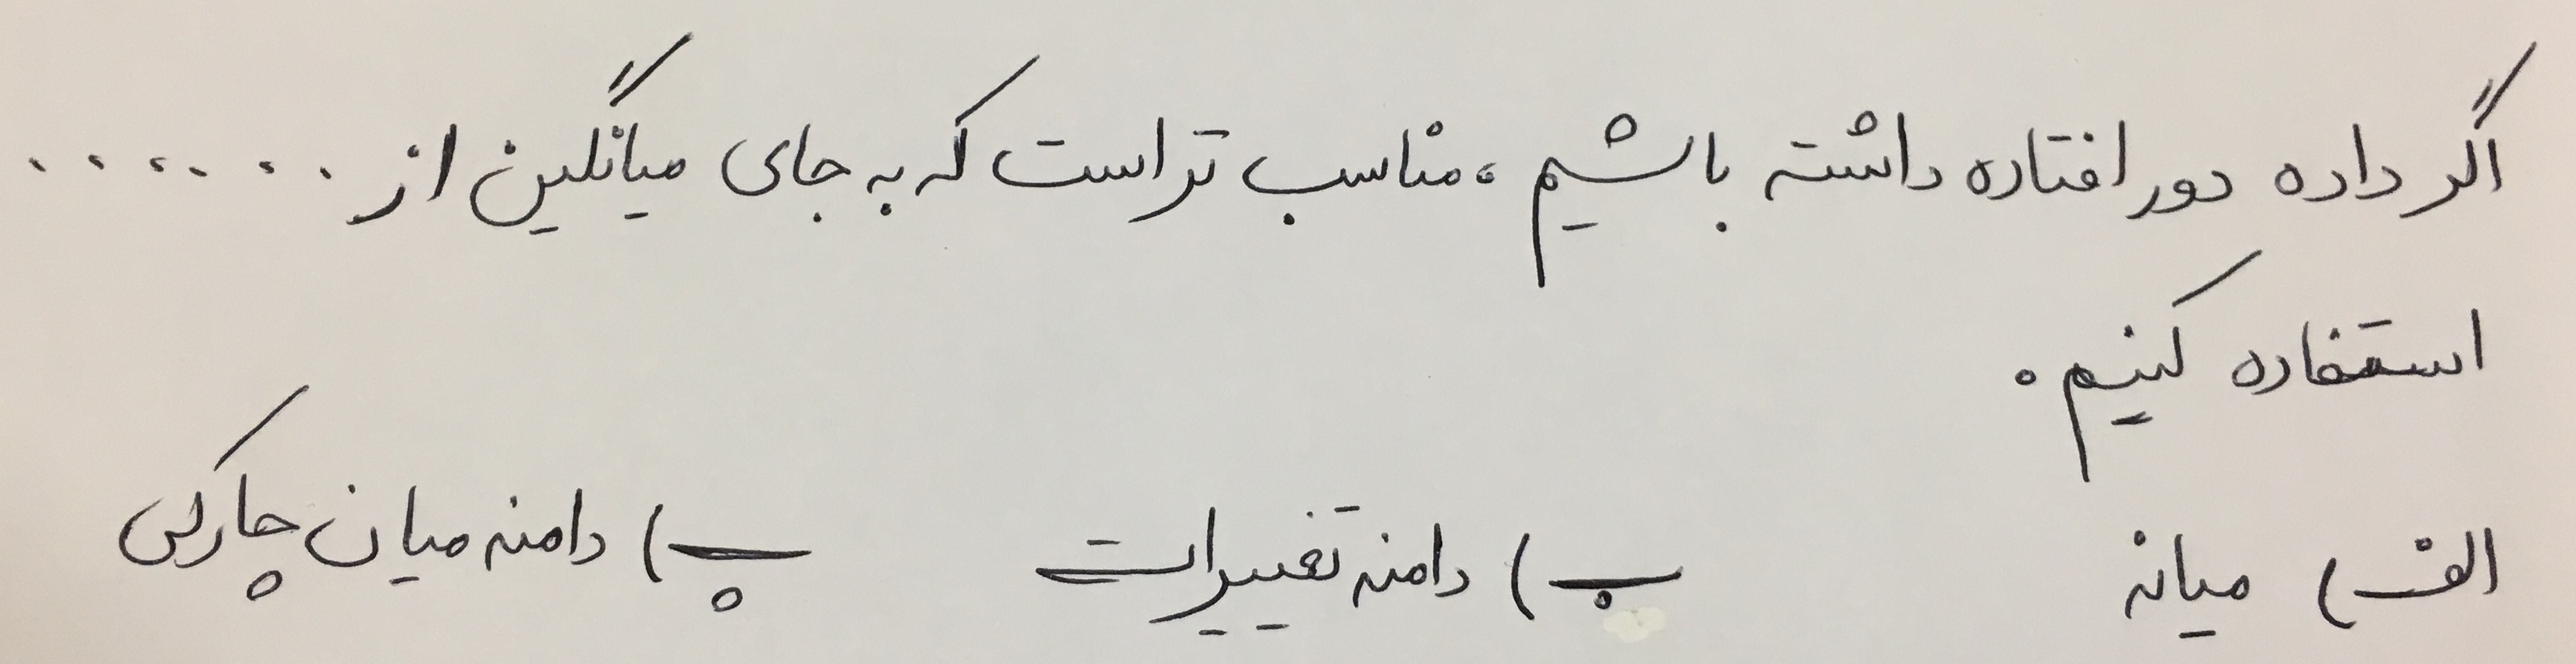 اگر داده دور افتاده داشته باشیم، مناسب تر است که به جای میانگین از .......
استفاده کنیم.
الف) میانه ب) دامنه تغییرات پ) دامنه میان چارکی